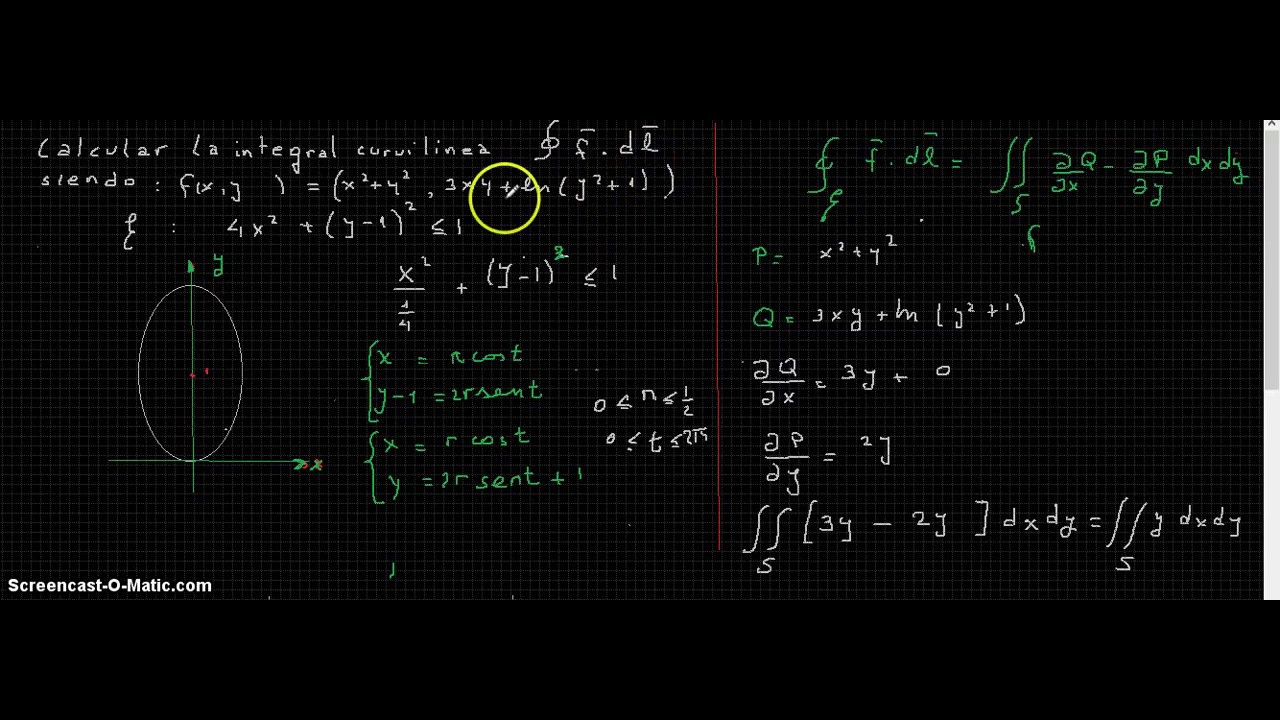 Calcular la integral curvilinea ∮ f̄ . dl̄
siendo : f(x,y) = (x²+y², 3xy+ln(y²+1))
ξ : 4x² + (y-1)² ≤ 1
x²/(1/4) + (y-1)² ≤ 1
y
x
{x = r cos t
y-1 = 2r sen t
0 ≤ r ≤ 1/2
0 ≤ t ≤ 2π
{x = r cos t
y = 2r sen t + 1
∮ f̄ . dl̄ = ∬ ∂Q/∂x - ∂P/∂y dxdy
S
P = x²+y²
Q = 3xy + ln (y²+1)
∂Q/∂x = 3y + 0
∂P/∂y = 2y
∬ [3y - 2y] dxdy = ∬ y dxdy
S S
Screencast-O-Matic.com